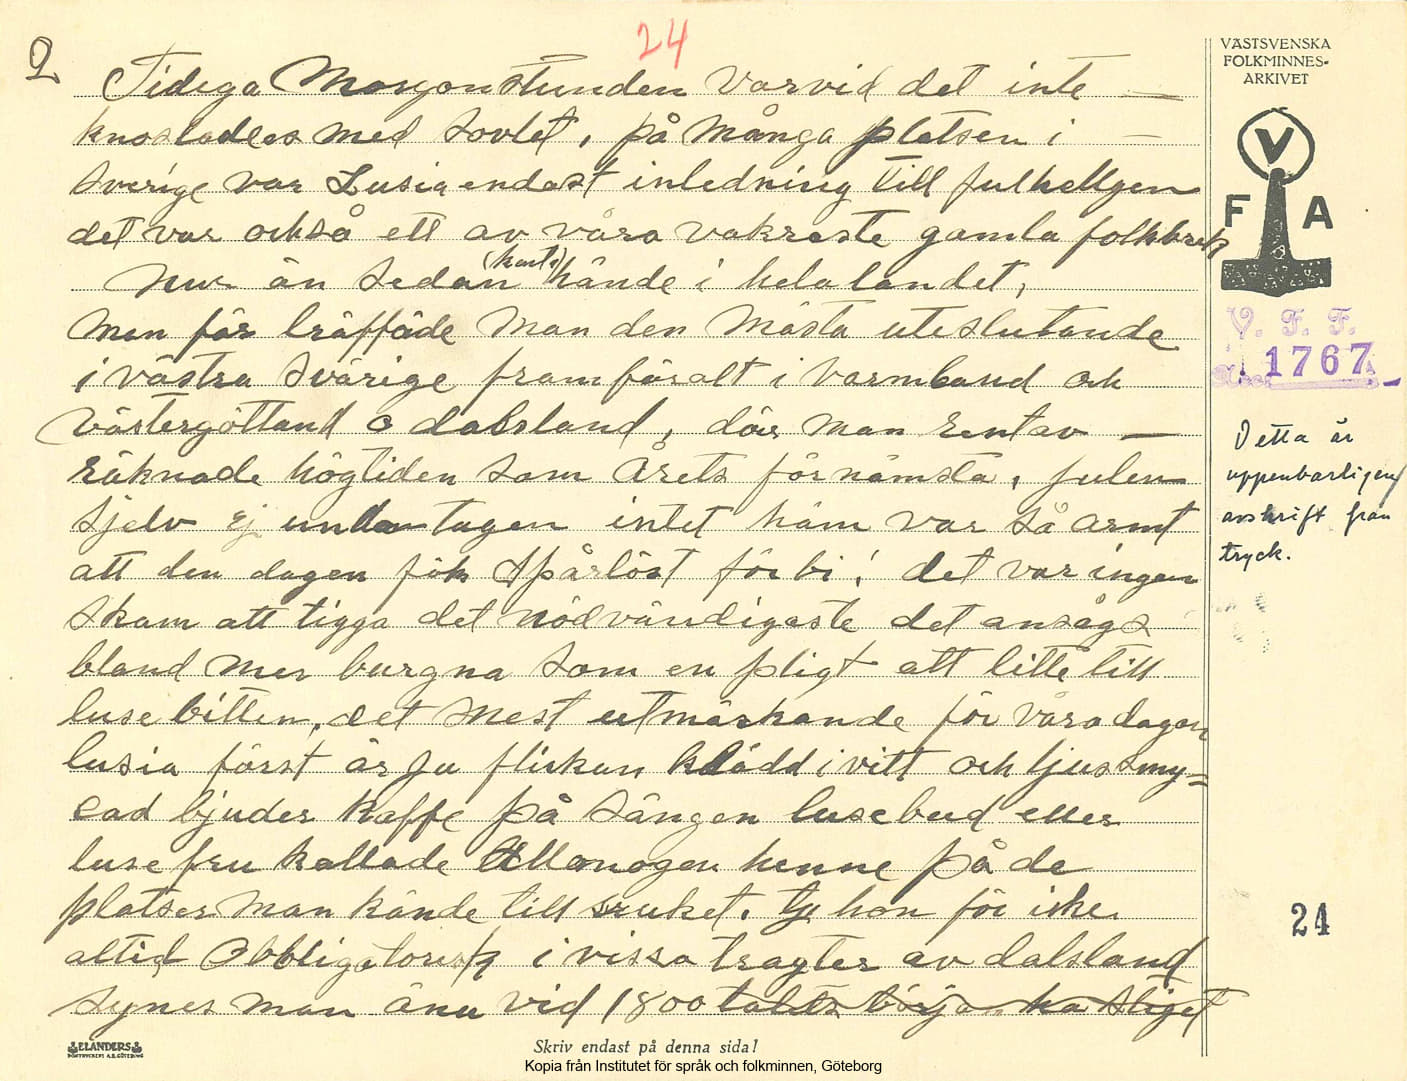 24
2
VÄSTSVENSKA
FOLKMINNES-
ARKIVET
Tidega Morgonstunden varvid det inte —
knosladdes med sovlet, på många platsen i —
Sverige var Lusia endast inledning till julhellgen
det var också ett av våra vakraste gamla folkbruk
V
F A
nu än sedan (kant) hände i hela landet,
men för träffade man den mästa uteslutande
V. F. F.
1767
i västra Svärige framföralt i Varmland och
västergöttland o dalsland, där man rentav —
räknade högtiden som Årets förnämsta, julen
sjelv ej undantagen intet häm var så armt
att den dagen fök spårlöst förbi! det var ingen
Detta är
uppenbarligen
avskrift från
tryck.
skam att tigga det nödvändigaste det ansågs
bland mer burgna som en pligt att litte till
luse bitten, det mest utmärkande för våra dagar
lusia först är ju flickan klädd i vitt och ljussmy=
cad bjuder kaffe på sängen lusebud eller
luse fru kallade Allmogen henne på de
platser man kände till bruket. ty hon för icke
altid Obbligatorisk i vissa tragter av dalsland
synes man änu vid 1800 talets början ha sliget
24
ELANDERS
BOKTRYCKERI A.B. GÖTEBORG
Skriv endast på denna sida!
Kopia från Institutet för språk och folkminnen, Göteborg